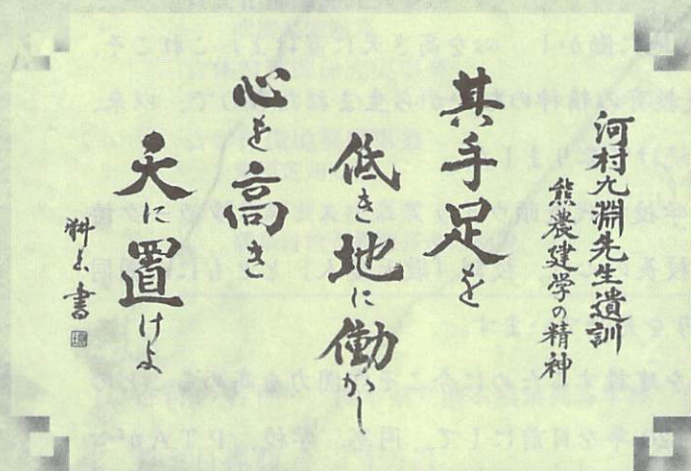 河村九淵先生遺訓
熊農建学の精神
其手足を
低き地に働かし
心を高き
天に置けよ
書